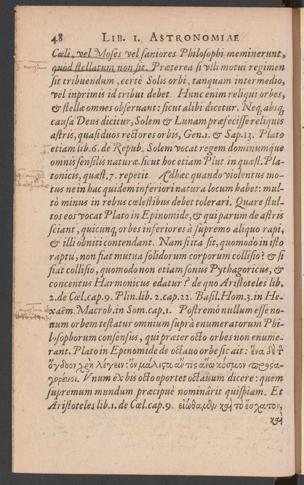 48 LIB. I. ASTRONOMIAE
Cœli, vel Moses vel saniores Philosophi meminerunt,
quod stellatum non sit. Præterea si vlli motui regimen
sit tribuendum, certè Solis orbi, tanquam intermedio,
vel inprimis id tribui debet. Hunc enim reliqui orbes,
& stellæ omnes observant: sicut alibi dicetur. Neq, absq,
causa Deus dicitur, Solem & Lunam præfecisse reliquis
astris, quasi duos rectores orbis, Gen. 1. & Sap. 13. Plato
etiam lib. 6. de Repub. Solem vocat regem dominumque
omnis sensilis naturæ. sicut hoc etiam Plut in quæst. Pla-
tonicis, quæst. 7. repetit. Adhæc quando violentus mo-
tus ne in hac quidem inferiori natura locum habet: mul-
tò minus in rebus cœlestibus debet tolerari. Quare stul-
tos eos vocat Plato in Epinomide, & qui parum de astris
sciant, quicunq, orbes inferiores à supremo aliquo rapi,
& illi obniti contendant. Nam si ita sit, quomodo in isto
raptu, non fiat mutua solidorum corporum collisio? & si
fiat collisio, quomodo non etiam sonus Pythagoricus, &
concentus Harmonicus edatur? de quo Aristoteles lib.
2. de Cœl. cap. 9. Plin. lib. 2. cap. 22. Basil. Hom. 3. in He-
xaëm. Macrob. in Som. cap. 1. Postremò nullum esse no-
num orbem testatur omnium suprà enumeratorum Phi-
losophorum consensus, qui præter octo orbes non enume-
rant. Plato in Epinomide de octauo orbe sic ait: ἕνα δὲ τ
ὄγδοον χρὴ λέγειν: ὃν μάλιστα ἄν τις ἄνω κόσμον προσα-
γορεύοι. Vnum ex bis octo oportet octauum dicere: quem
supremum mundum præcipuè nominârit quispiam. Et
Aristoteles lib. 1. de Cœl. cap. 9. εἰώθαμεν καὶ τὸ ἔσχατον,
καὶ